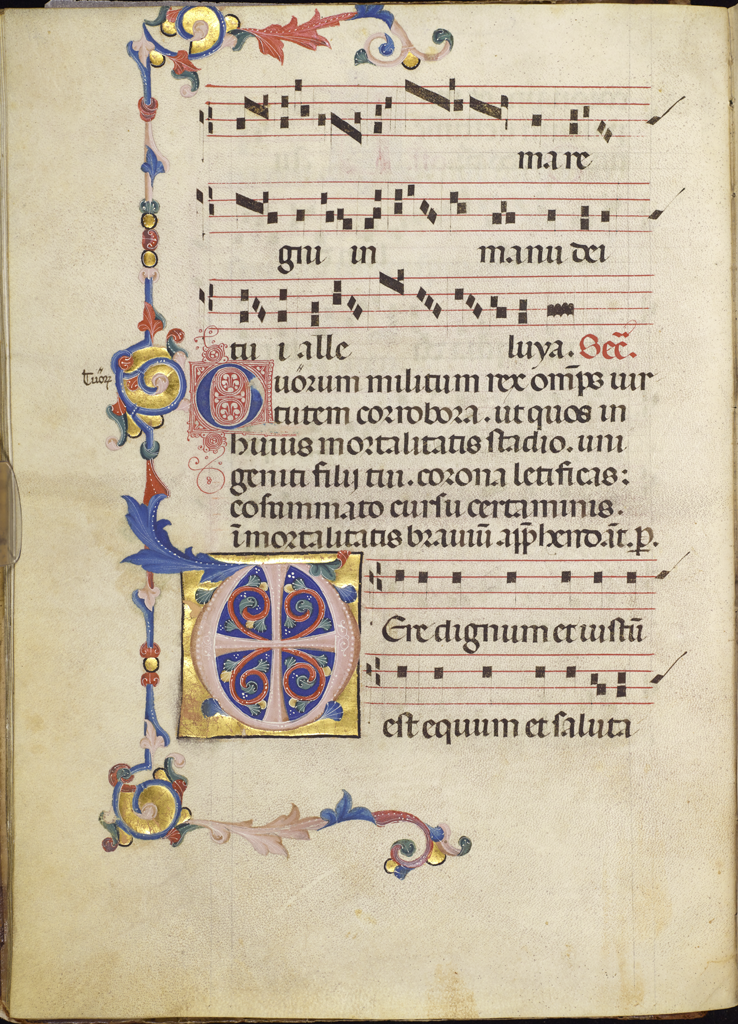 mare
giu in manu dei
tu i alle luya. Sec̄.
tuoꝝ
Tuōrum militum rex om̄ps uir
tutem corrobora. ut quos in
huius mortalitatis stadio. uni
geniti filij tui. corona letificas:
cōsummato cursu certaminis.
īmortalitatis brauiū app̄hendāt. p.
Ere dignum et iustū
est equum et saluta